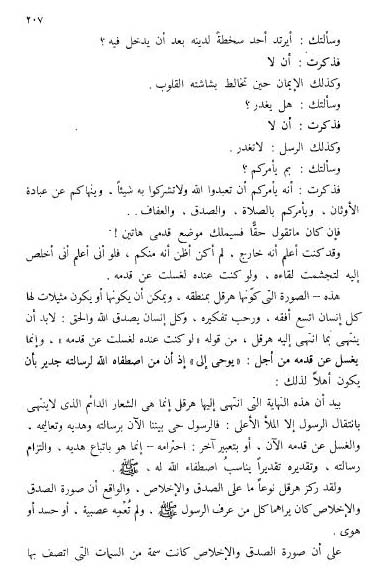 ٢٠٧
وسألتك : أيرتد أحد سخطةً لدينه بعد أن يدخل فيه ؟
فذكرت : أن لا
وكذلك الإيمان حين تخالط بشاشته القلوب .
وسألتك : هل يغدر ؟
فذكرت : أن لا
وكذلك الرسل : لاتغدر .
وسألتك : بم يأمركم ؟
فذكرت : أنه يأمركم أن تعبدوا الله ولاتشركوا به شيئاً . وينهاكم عن عبادة
الأوثان ، ويأمركم بالصلاة ، والصدق ، والعفاف . .
فإن كان ماتقول حقًّا فسيملك موضع قدمى هاتين ! .
وقد كنت أعلم أنه خارج ، لم أكن أظن أنه منكم ، فلو أنى أعلم أنى أخلص
إليه لتجشمت لقاءه ، ولو كنت عنده لغسلت عن قدمه .
هذه – الصورة التى كوّنها هرقل بمنطقه ، ويمكن أن يكونها أو يكون مثيلات لها
كل إنسان اتسع أفقه ، ورحب تفكيره ، وكل إنسان يصدق الله والحق : لابد أن
ينتهى بما انتهى إليه هرقل ، من قوله « لو كنت عنده لغسلت عن قدمه » . وإنما
يغسل عن قدمه من أجل : « يوحى إلى » إذ أن من اصطفاه الله لرسالته جدير بأن
يكون أهلاً لذلك :
بيد أن هذه النهاية التى انتهى إليها هرقل إنما هى الشعار الدائم الذى لاينتهى
بانتقال الرسول إلا الملأ الأعلى : فالرسول حى بيننا الآن برسالته وهديه وتعاليمه .
والغسل عن قدمه الآن . أو بتعبير آخر : احترامه – إنما هو باتباع هديه . والتزام
رسالته ، وتقديره تقديراً يناسبُ اصطفاء الله له ، ﷺ .
ولقد ركز هرقل نوعاً ما على الصدق والإخلاص . والواقع أن صورة الصدق
والإخلاص كان يراهما كل من عرف الرسول ﷺ ، ولم تُعْمِه عصبية . أو حسد أو
هوى .
على أن صورة الصدق والإخلاص كانت سمة من السمات التى اتصف بها